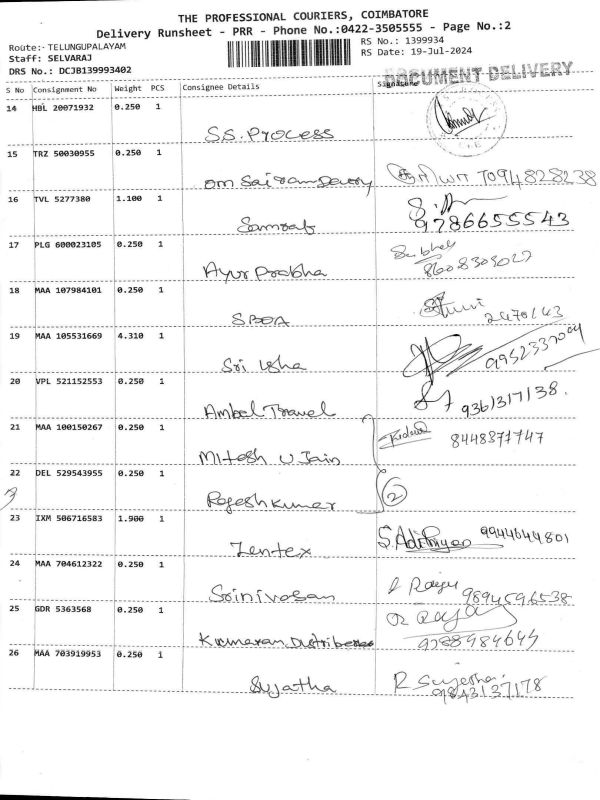 THE PROFESSIONAL COURIERS, COIMBATORE
Delivery Runsheet - PRR - Phone No.:0422-3505555 - Page No.:2
Route:- TELUNGUPALAYAM
RS No.: 1399934
Staff: SELVARAJ
RS Date: 19-Jul-2024
DRS No.: DCJB139993402
DOCUMENT DELIVERY
S No Consignment No Weight PCS Consignee Details Signature
14 HBL 20071932 0.250 1
S.S. Process
15 TRZ 50030955 0.250 1
Om Sairam
16 TVL 5277380 1.100 1
9786655543
17 PLG 600023105 0.250 1
Ayur Prabha
8608303027
18 MAA 107984101 0.250 1
SBOA
2470143
19 MAA 105531669 4.310 1
Sri Usha
20 VPL 521152553 0.250 1
Ambel Travel
9361317138.
21 MAA 100150267 0.250 1
Mitesh U Jain
8448371747
22 DEL 529543955 0.250 1
Rajesh Kumar
2
23 IXM 506716583 1.900 1
Zentex
9944644801
24 MAA 704612322 0.250 1
Srinivasan
9894596538
25 GDR 5363568 0.250 1
Kumaran
26 MAA 703919953 0.250 1
Sujatha
9843137178